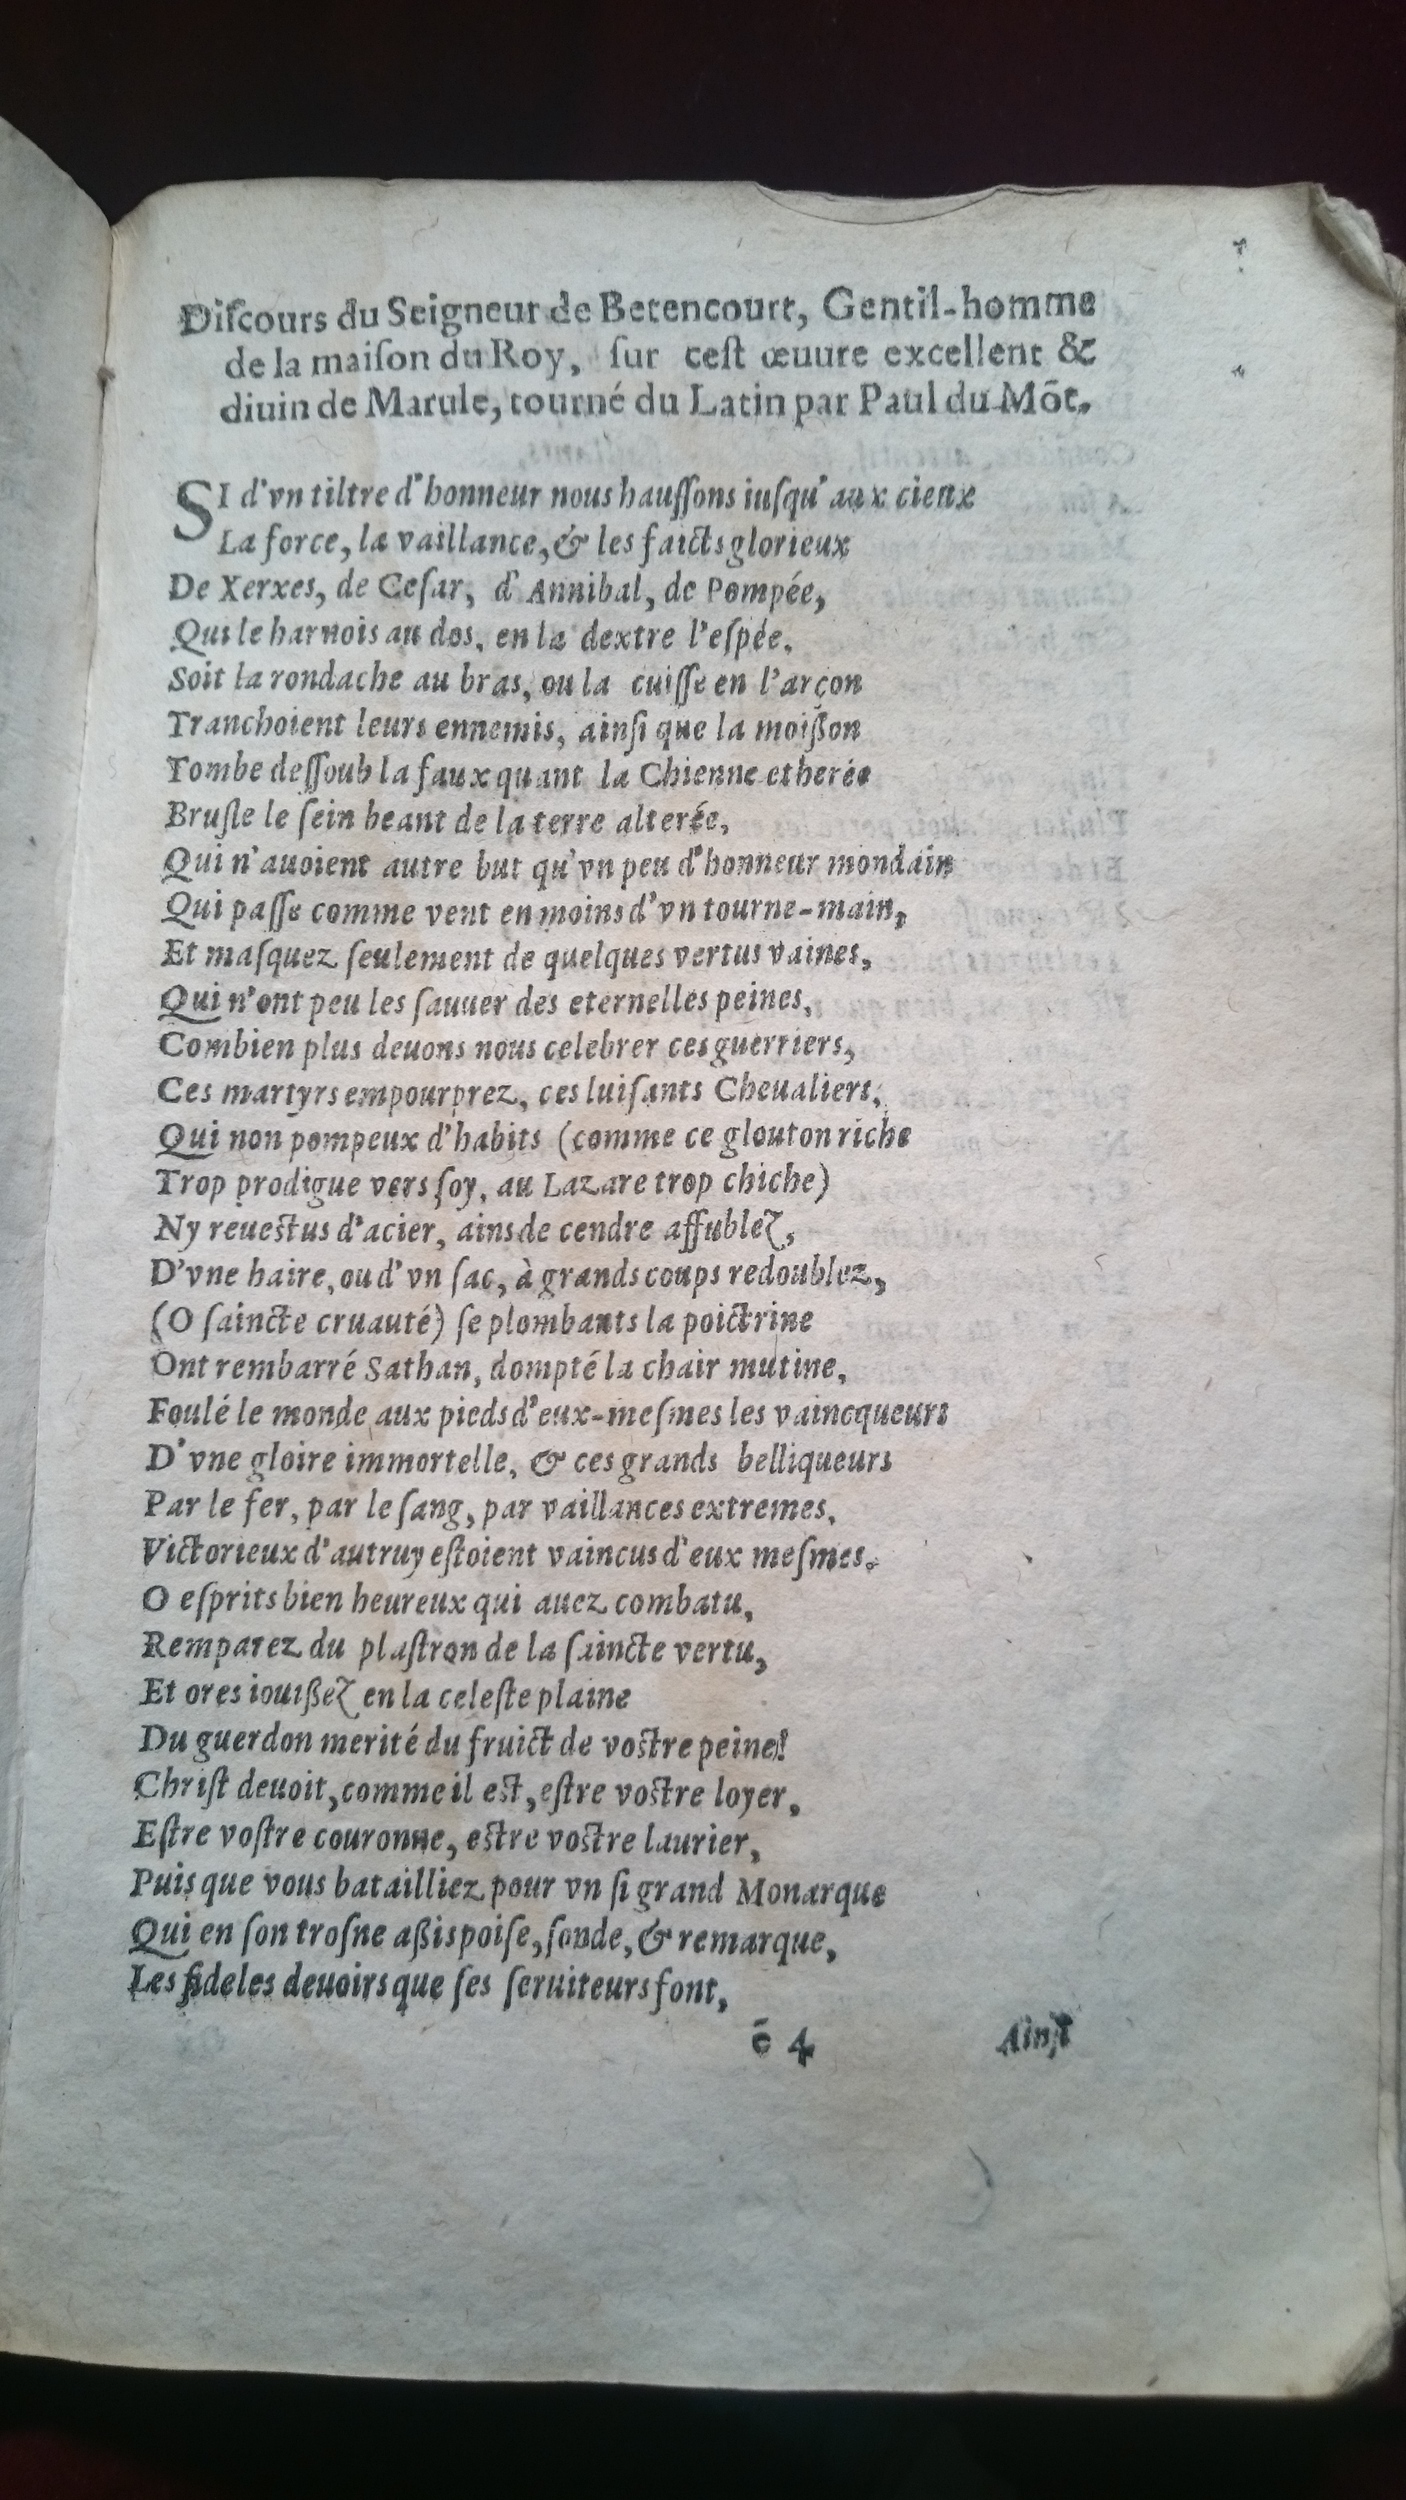 Diſcours du Seigneur de Betencourt, Gentil-homme
de la maiſon du Roy, ſur ceſt œuure excellent &
diuin de Marule, tourné du Latin par Paul du Mõt.
SI d'vn tiltre d'honneur nous hauſſons iuſqu'aux cieux
La force, la vaillance, & les faicts glorieux
De Xerxes, de Ceſar, d'Annibal, de Pompée,
Qui le harnois au dos, en la dextre l'eſpée.
Soit la rondache au bras, ou la cuiſſe en l'arçon
Tranchoient leurs ennemis, ainſi que la moißon
Tombe deſſoub la faux quant la Chienne etherée
Bruſle le ſein beant de la terre alterée,
Qui n'auoient autre but qu'vn peu d'honneur mondain
Qui paſſe comme vent en moins d'vn tourne-main,
Et maſquez ſeulement de quelques vertus vaines,
Qui n'ont peu les ſauuer des eternelles peines,
Combien plus deuons nous celebrer ces guerriers,
Ces martyrs empourprez, ces luiſants Cheualiers,
Qui non pompeux d'habits (comme ce glouton riche
Trop prodigue vers ſoy, au Lazare trop chiche)
Ny reueſtus d'acier, ains de cendre affublez,
D'vne haire, ou d'vn ſac, à grands coups redoublez,
(O ſaincte cruauté) ſe plombants la poictrine
Ont rembarré Sathan, dompté la chair mutine,
Foulé le monde aux pieds d'eux-meſmes les vaincqueurs
D'vne gloire immortelle, & ces grands belliqueurs
Par le fer, par le ſang, par vaillances extremes,
Victorieux d'autruy eſtoient vaincus d'eux meſmes.
O eſprits bien heureux qui auez combatu,
Remparez du plaſtron de la ſaincte vertu,
Et ores iouißez en la celeſte plaine
Du guerdon merité du fruict de voſtre peine!
Chriſt deuoit, comme il eſt, eſtre voſtre loyer,
Eſtre voſtre couronne, eſtre voſtre laurier,
Puis que vous batailliez pour vn ſi grand Monarque
Qui en ſon troſne aßis poiſe, ſonde, & remarque,
Les fideles deuoirs que ſes ſeruiteurs font,
ē 4 Ainſi